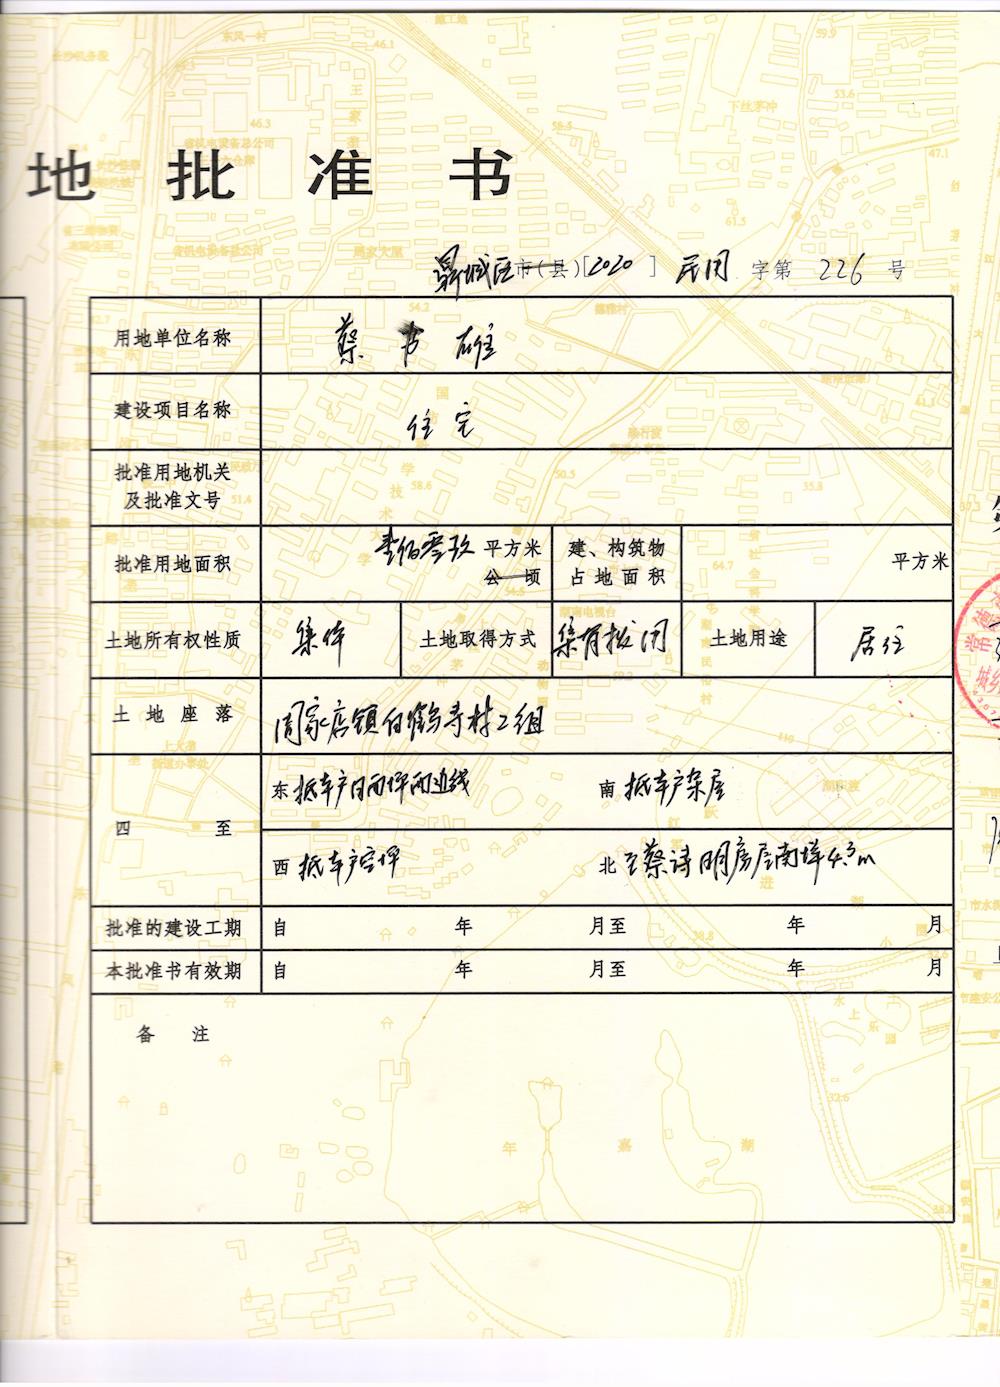 地批准书
鼎城区市(县)[2020]民用字第226号
用地单位名称 蔡书雄
建设项目名称 住宅
批准用地机关
及批准文号
批准用地面积 壹佰零玖 平方米 公顷 建、构筑物占地面积 平方米
土地所有权性质 集体 土地取得方式 集有拨用 土地用途 居住
土地座落 周家店镇白鹤寺村2组
四至
东 抵本户 南 抵本户杂屋
西 抵本户空坪 北 至蔡诗明房屋南墙4.3m
批准的建设工期 自 年 月至 年 月
本批准书有效期 自 年 月至 年 月
备注